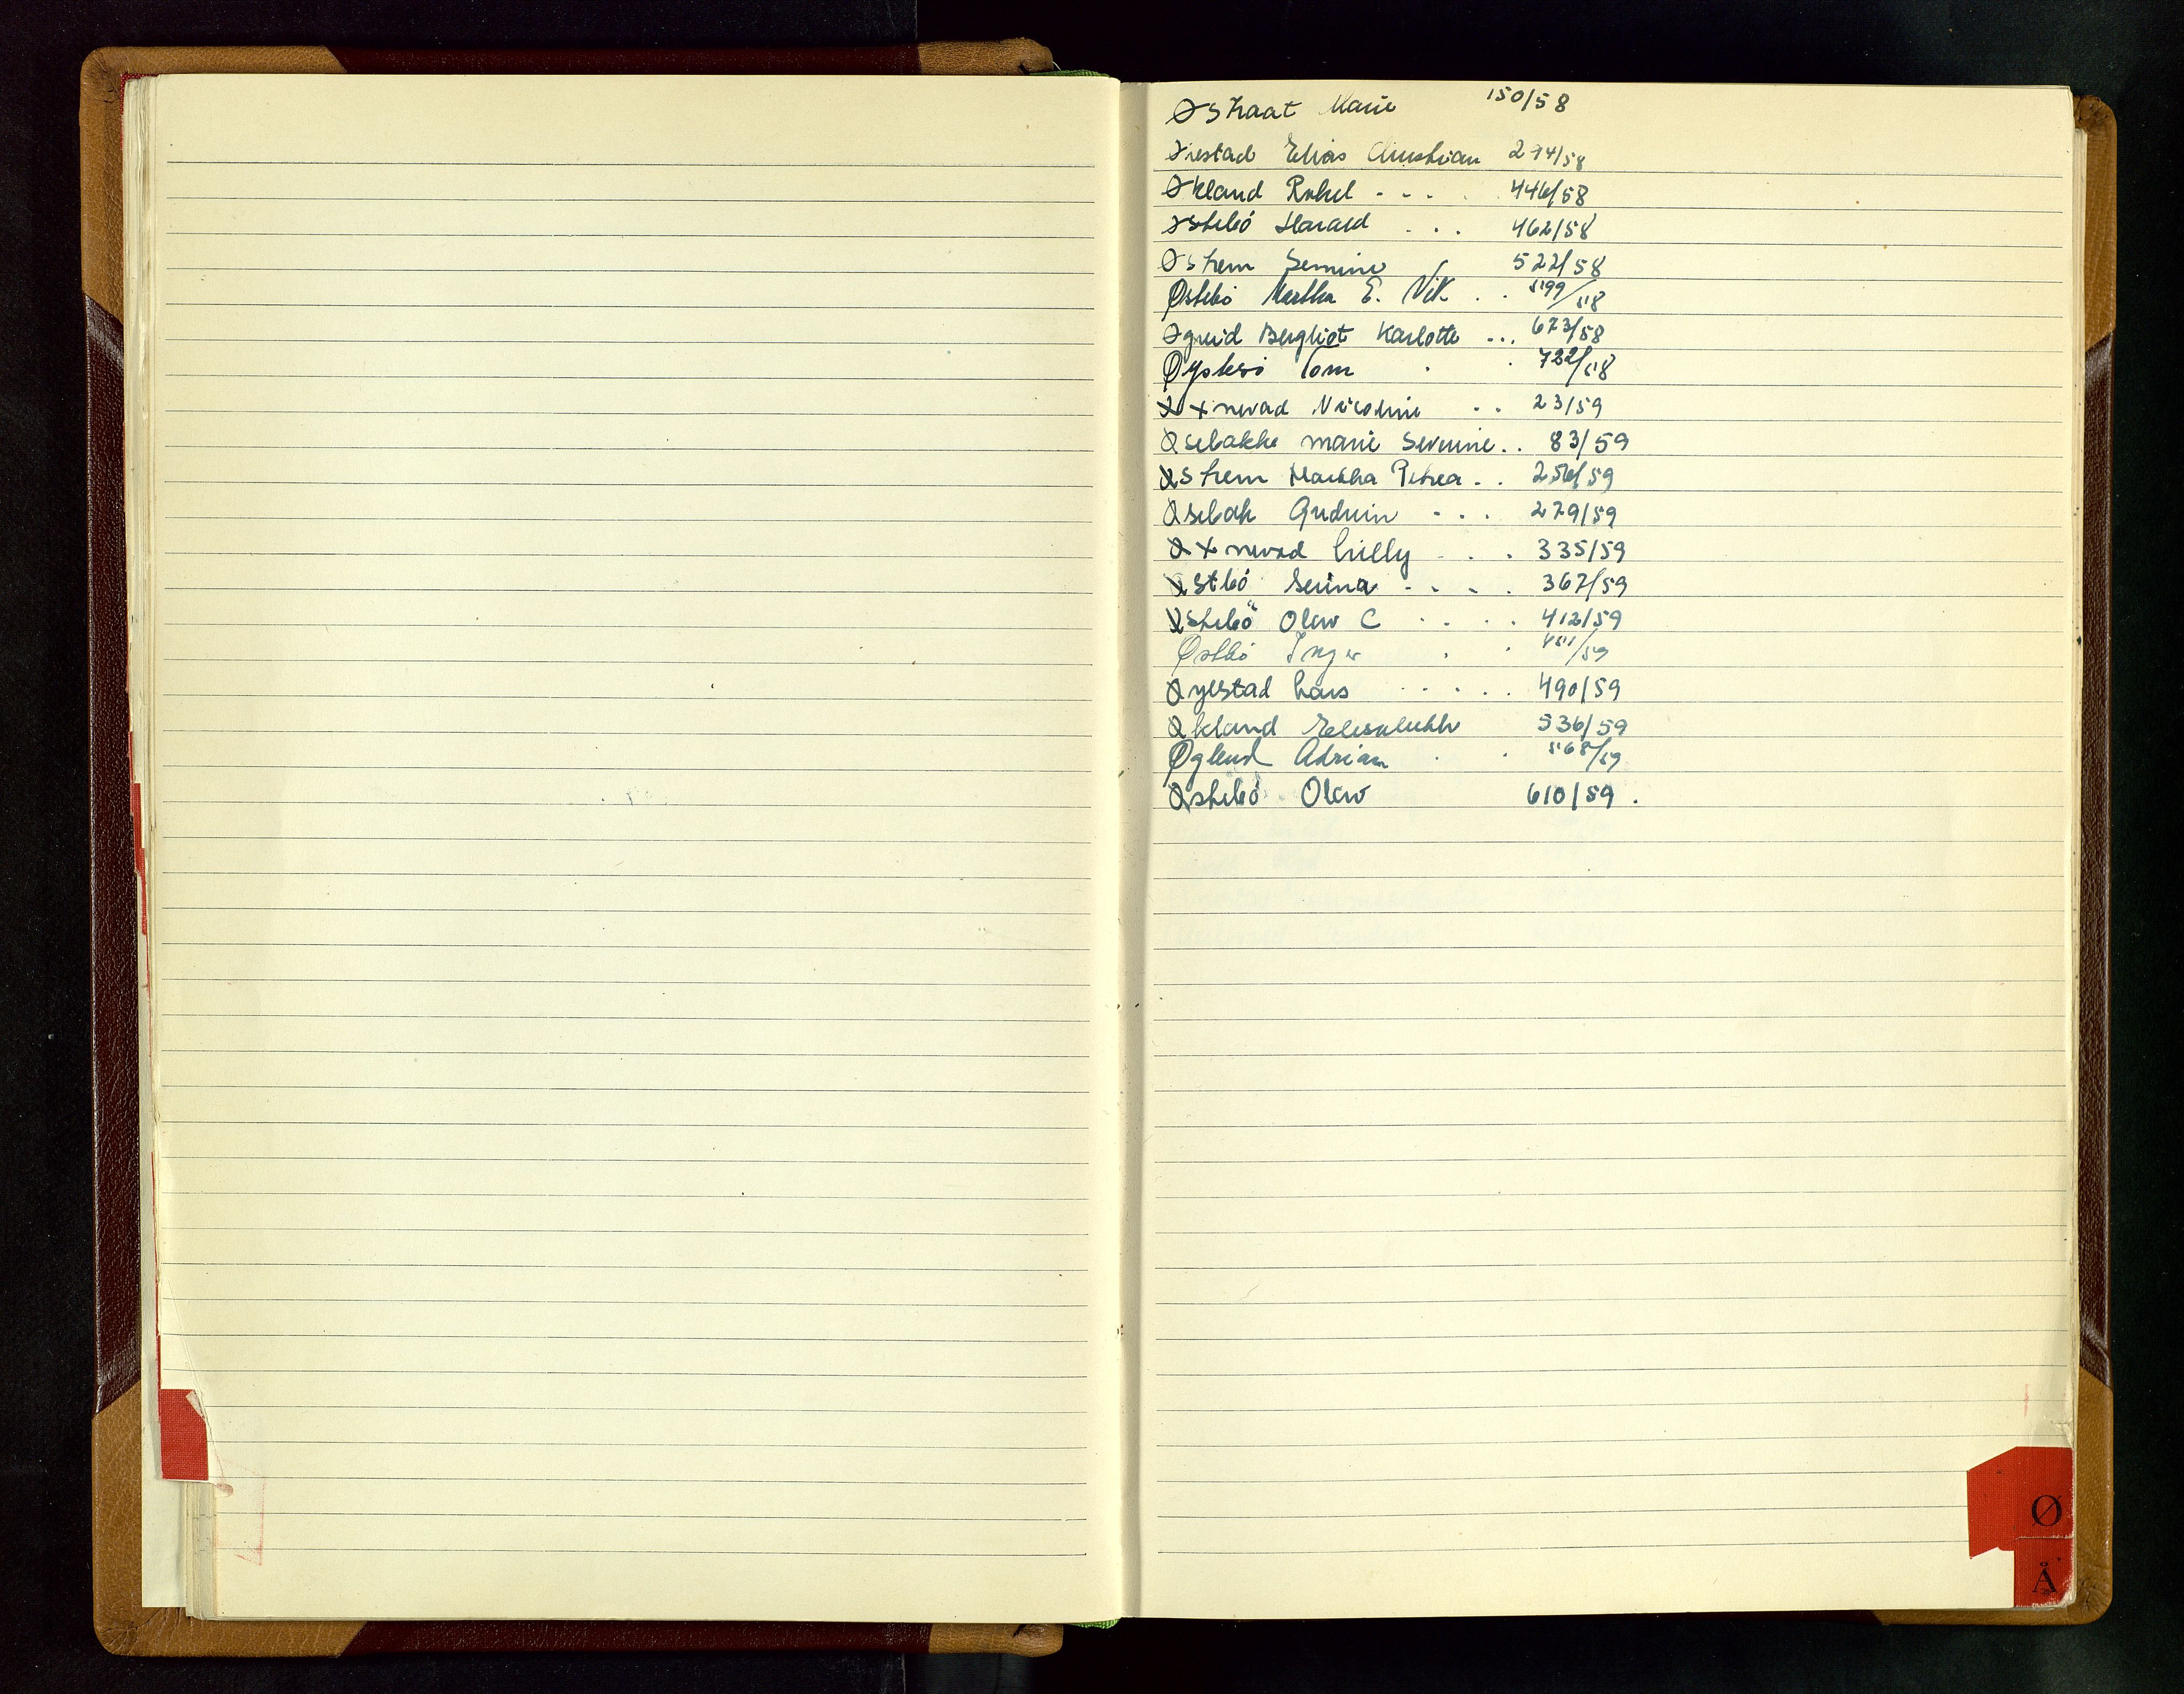 Østraat Marie 150/58
Ørestad Elias Christian 274/58
Økland Rakel - - - . 446/58
Østebö Harald . . . 462/58
Østrem Semine 522/58
Østebö Martha E. Vik . . 599/58
Øgreid Bergliot Karlotte ... 673/58
Øysteö Tom . . 722/58
Øxnevad Nicoline . . 23/59
Øsebakke Marie Severine . . 83/59
Østrem Martha Petrea . . 256/59
Øsebak Gudrun - - . 279/59
Øxnevad Lilly . . . 335/59
Østbö Serina - . - . 367/59
Østebö Olav C . . . . 412/59
Østbö Inger . . 451/59
Øyestad Lars . . . . . 490/59
Økland Elisabeth 536/59
Øglend Adrian . . 568/59
Østebö Olav 610/59 .
Ø
Å